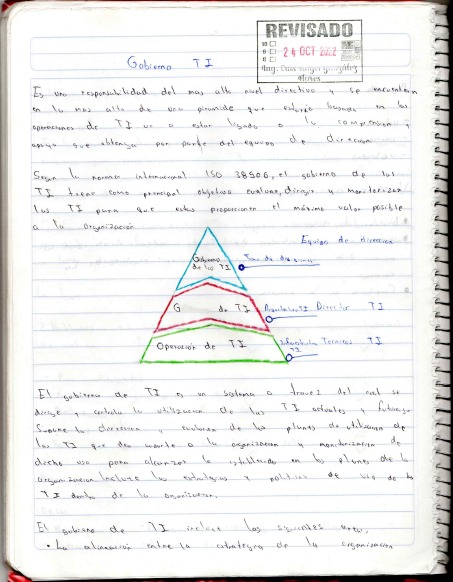 REVISADO
24 OCT 2022
Gobierno TI
Es una responsabilidad del mas alto nivel directivo y se encuentra
en lo mas alto de una piramide que basada en las
operaciones de TI va a estar ligado a la comprension y
apoyo que obtenga por parte del equipo de direccion
Segun la norma internacional ISO 38500, el gobierno de las
TI tiene como principal objetivo evaluar, dirigir y monitorizar
las TI para que estas proporcionen el maximo valor posible
a la organización
Equipo de direccion
Gobierno
de las TI
G de TI
Director TI
Operación de TI
Tecnicos TI
El gobierno de TI es un sistema a travez del cual se
dirige y controla la utilizacion de las TI actuales y futuras
Supone la direccion y de los planes de utilizacion de
las TI que de a la organizacion y monitorizacion de
dicho uso para alcanzar lo establecido en los planes de la
organizacion Incluye las estrategias y politicas de uso de
TI dentro de la organizacion.
El gobierno de TI incluye las siguientes
• La alineacion entre la estrategia de la organizacion